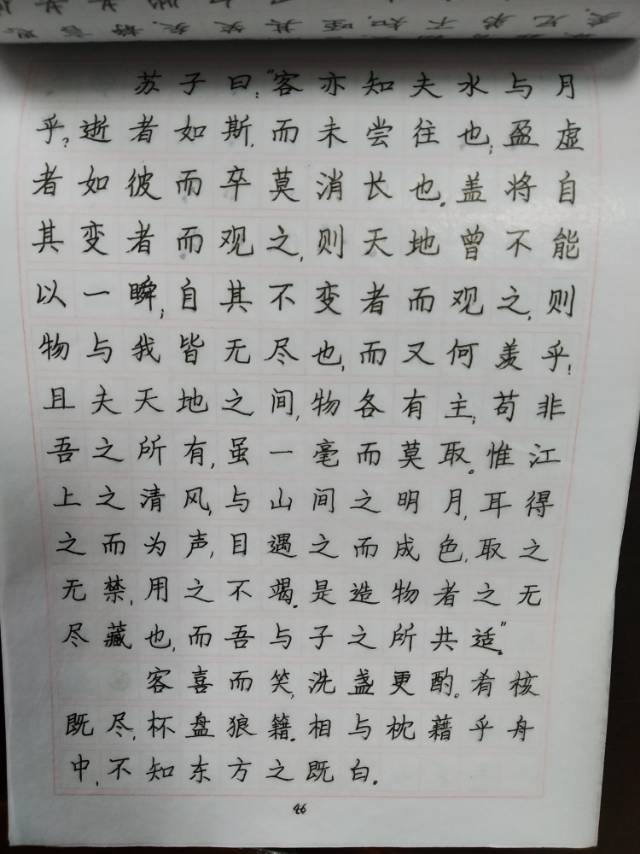 苏子曰:“客亦知夫水与月
乎?逝者如斯,而未尝往也;盈虚
者如彼,而卒莫消长也。盖将自
其变者而观之,则天地曾不能
以一瞬;自其不变者而观之,则
物与我皆无尽也,而又何羡乎!
且夫天地之间,物各有主;苟非
吾之所有,虽一毫而莫取。惟江
上之清风,与山间之明月,耳得
之而为声,目遇之而成色,取之
无禁,用之不竭。是造物者之无
尽藏也,而吾与子之所共适。”
客喜而笑,洗盏更酌。肴核
既尽,杯盘狼籍。相与枕藉乎舟
中,不知东方之既白。
46